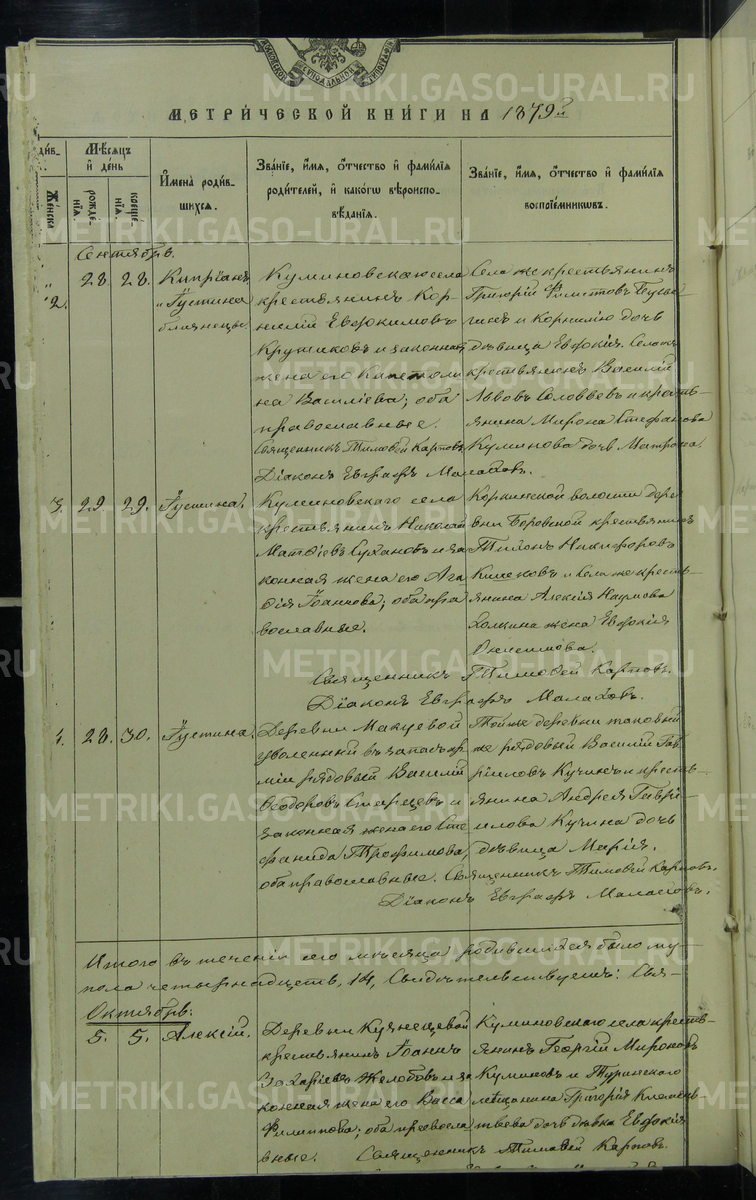 МЕТРИ́ЧЕСКОЙ КНИ́ГИ НА 1879й
Мѣсяцъ и день
рожденія.
крещенія.
Женска
Имена родившихся.
Зва́ніе, и́мя, о́тчество и фами́лія родителей, и какого вѣроисповѣданія.
Зва́ніе, и́мя, о́тчество и фами́лія воспріемниковъ.
Сентябрь.
" 2. 28. 28. Кипріанъ
"Іустина
близнецы.
Куминовскаго села
крестьянинъ Кор-
нилій Евфимовъ
Крутиковъ и законная
жена его Капетоли
на Василіева; оба
православные.
Села же крестьянинъ
Григорій
и Корнилію дочь
дѣвица Евфокія. Села же
крестьянинъ Василій
Львовъ Соловьевъ и кресть-
янина Мирона Стефанова
Куминова дочь Матрона
Священникъ Тимовей Карповъ.
Діаконъ Евграфъ Малаховъ.
3. 29. 29. Іустина.
Куминовскаго села
крестьянинъ Николай
Матвіевъ Сухановъ и за
конная жена его Ага
фія Іоаннова; оба пра
вославные.
Коркинской волости дере
вни Боровской крестьянинъ
Тихонъ Никифоровъ
и села же кресть-
янина Алексія Наумова
жена Евфокія
Священникъ Тимовей Карповъ.
Діаконъ Евграфъ Малаховъ.
4. 28. 30. Іустина.
Деревни Макуевой
уволенный въ запасъ ар
міи рядовый Василій
Ѳеодоровъ Старцевъ и
законная жена его Сте
фанида Трофимова,
оба православные.
Той же деревни таковый
же рядовый Василій Гав
ріиловъ Кучинъ и кресть-
янина Андрея Гаврі-
илова Кучина дочь
дѣвица Марія.
Священникъ Тимовей Карповъ.
Діаконъ Евграфъ Малаховъ.
Итого въ теченіи сего мѣсяца родившихся было му-
пола четырнадцать, 14, Свидѣтельствуемъ: Свя-
Октябрь.
5. 5. Алексій.
Деревни Кузнецовой
крестьянинъ Іоаннъ
Захаріевъ Желобовъ и за
конная жена его Васса
Филиппова; оба правосла
вные.
Куминовскаго села кресть-
янинъ Георгій Мироновъ
Куминовъ и Туринскаго
мѣщанина Григорія Климен-
тьева дочь дѣвка Евфокія
Священникъ Тимовей Карповъ.
METRIKI.GASO-URAL.RU